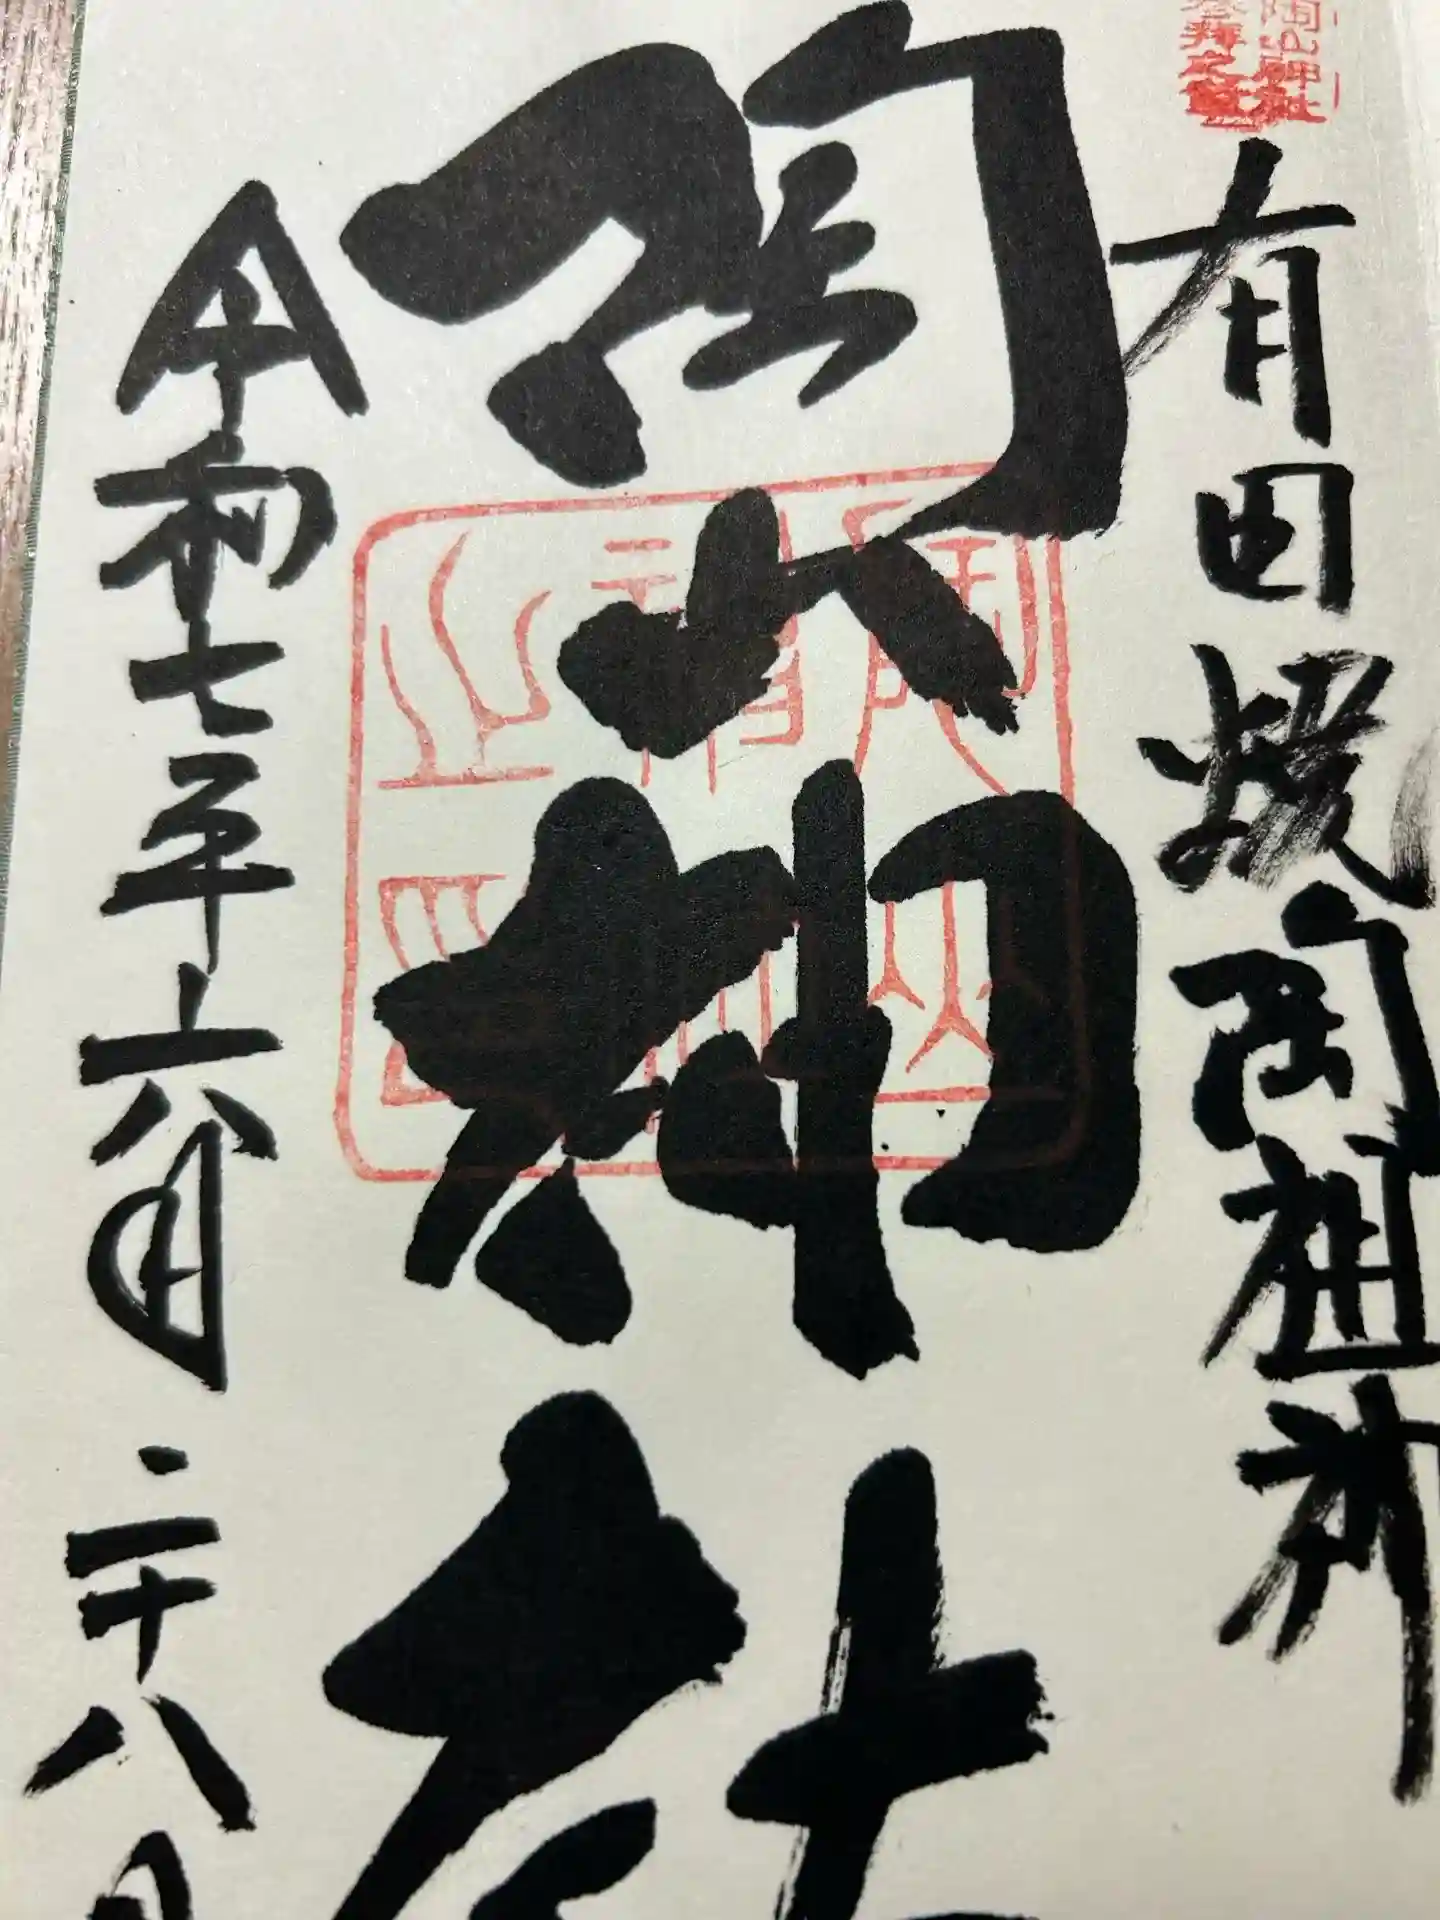 陶山神社
参拜之証
有田焼陶祖神
陶山神社
令和七年六月二十八日